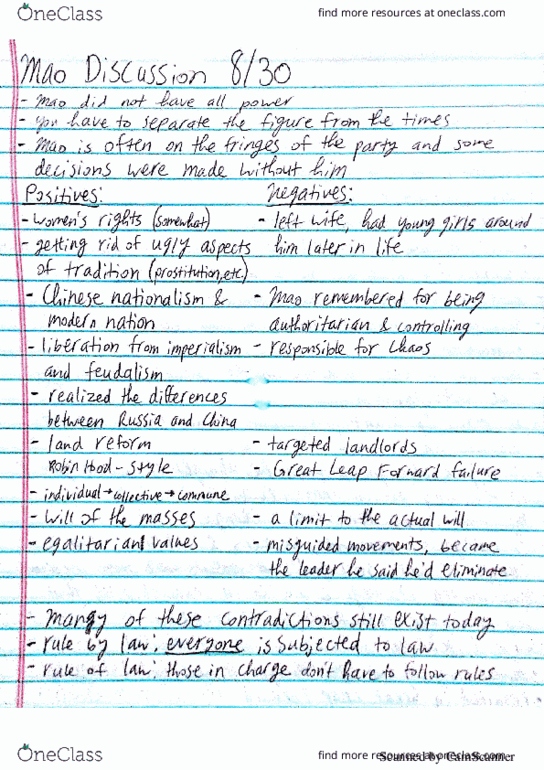 OneClass
find more resources at oneclass.com
Mao Discussion 8/30
- Mao did not have all power
- You have to separate the figure from the times
- Mao is often on the fringes of the party and some
decisions were made without him
Positives: Negatives:
- women's rights (somewhat) - left wife, had young girls around
- getting rid of ugly aspects him later in life
of tradition (prostitution, etc.)
- Chinese nationalism & - Mao remembered for being
modern nation authoritarian & controlling
- liberation from imperialism - responsible for chaos
and feudalism
- realized the differences
between Russia and China
- land reform - targeted landlords
Robin Hood-style - Great Leap Forward failure
- individual→collective→commune
- will of the masses - a limit to the actual will
- egalitarian values - misguided movements, became
the leader he said he'd eliminate
- many of these contradictions still exist today
- rule by law: everyone is subjected to law
- rule of law: those in charge don't have to follow rules
OneClass
find more resources at oneclass.com
Scanned by CamScanner